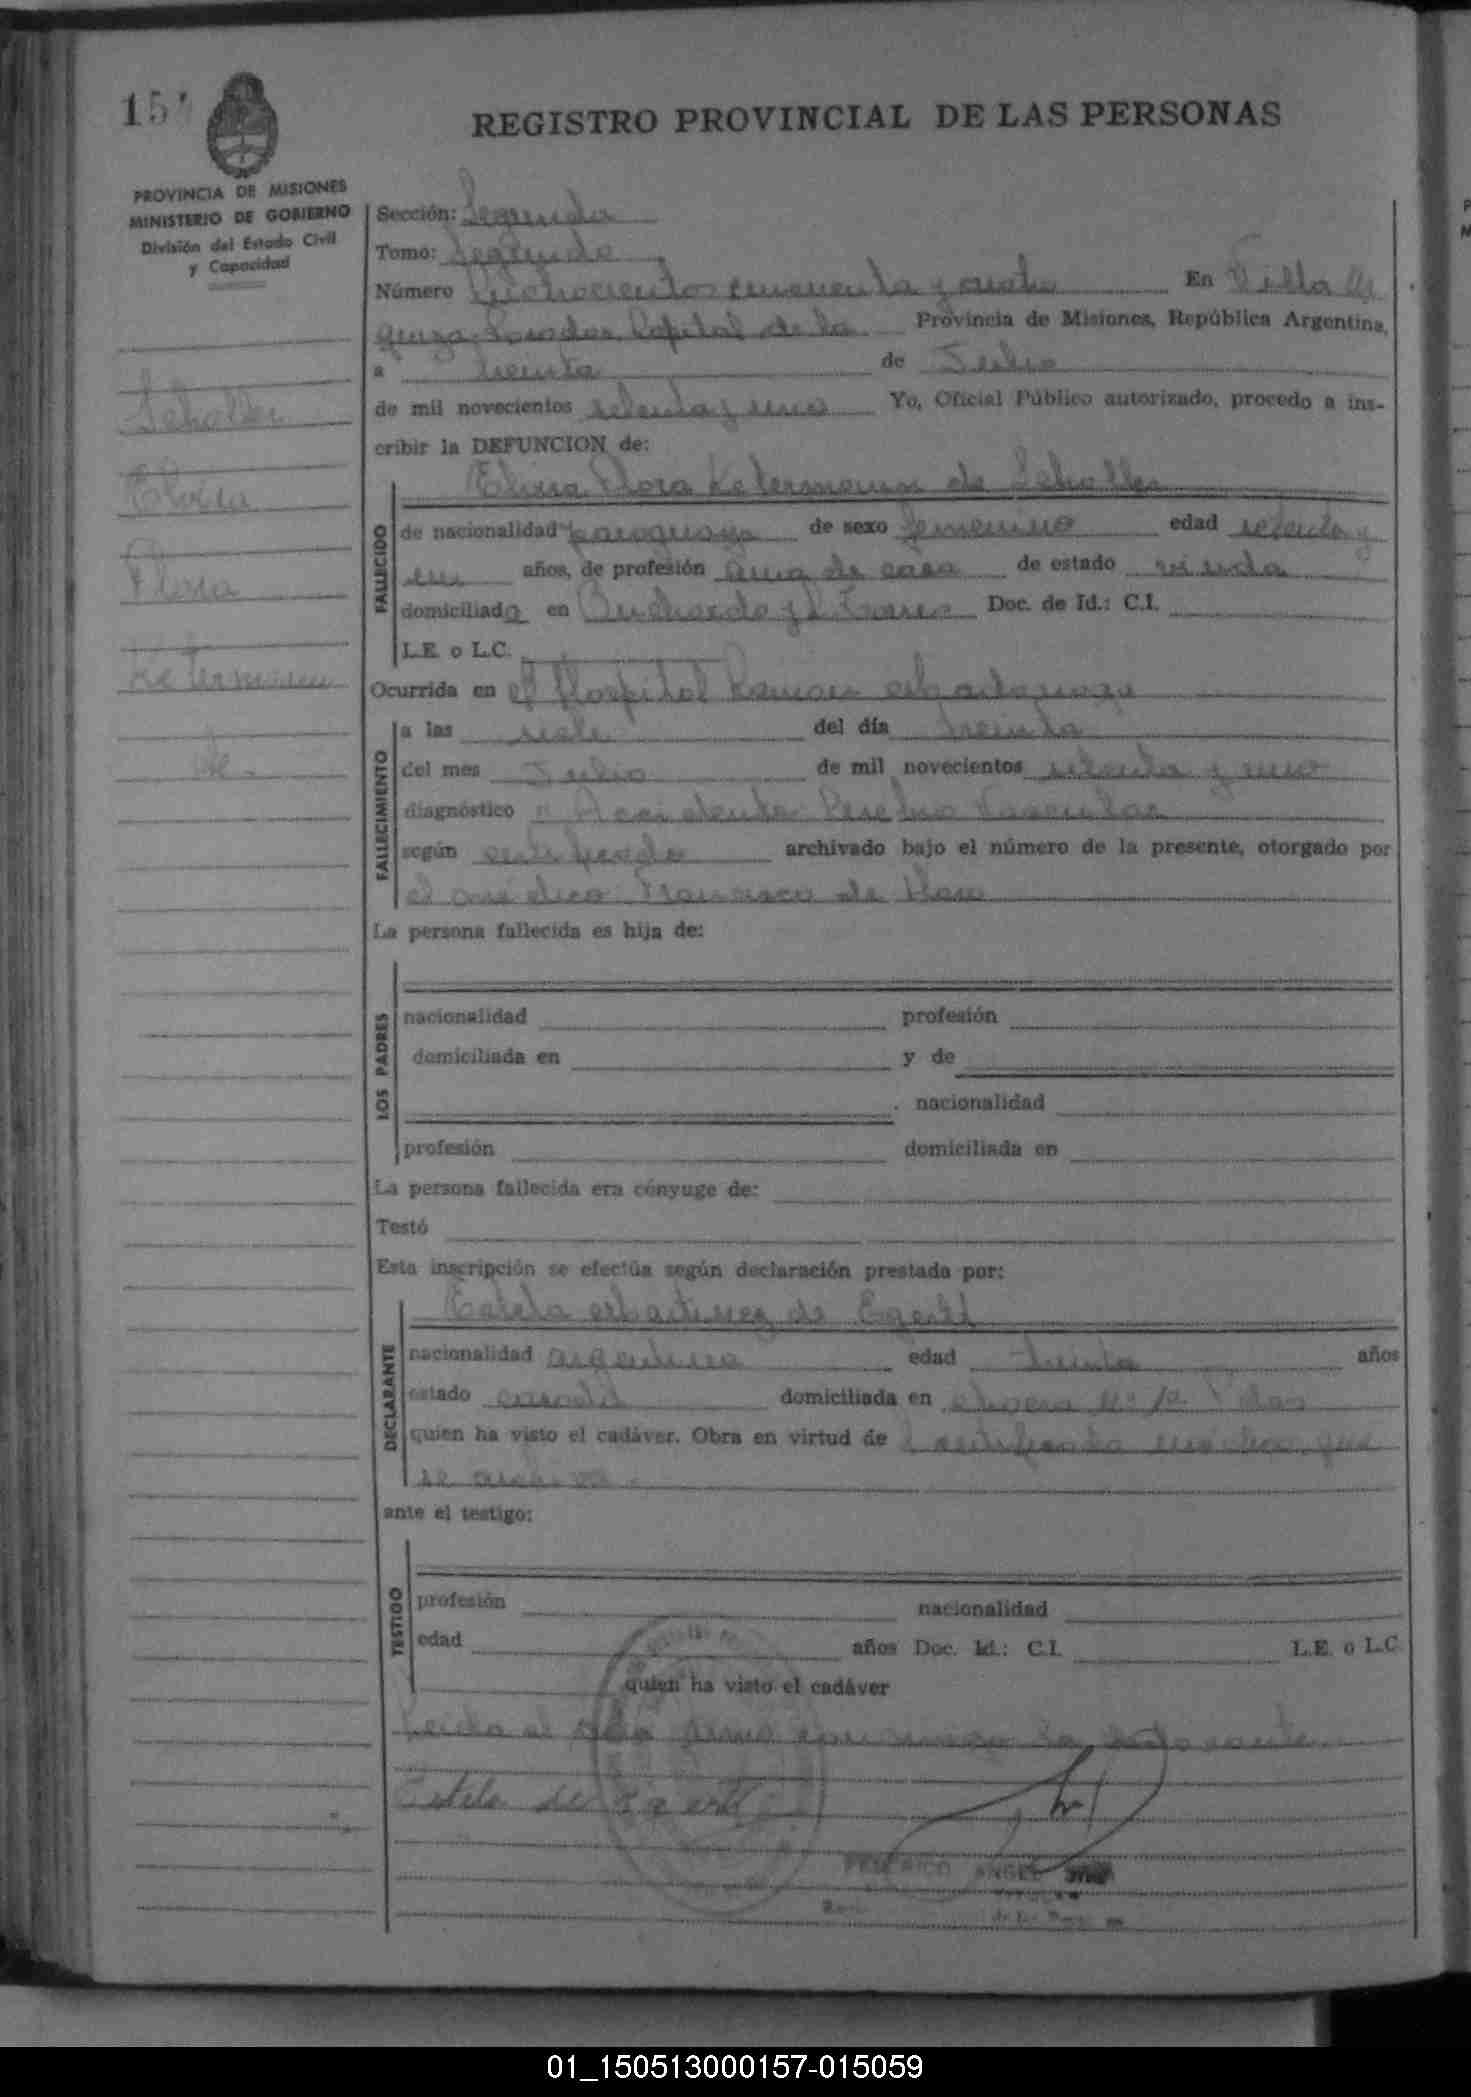 15
REGISTRO PROVINCIAL DE LAS PERSONAS
PROVINCIA DE MISIONES
MINISTERIO DE GOBIERNO
División del Estado Civil
y Capacidad
Scholler
Elvira
Flora
Ketermann
de.
Sección: Segunda
Tomo: Segundo
Número cuatrocientos cincuenta y cuatro En Villa Ur
quiza Posadas Capital de la Provincia de Misiones, República Argentina,
a treinta de Julio
de mil novecientos setenta y uno Yo, Oficial Público autorizado, procedo a ins-
cribir la DEFUNCION de:
Elvira Flora Ketermann de Scholler
FALLECIDO
de nacionalidad paraguaya de sexo femenino edad setenta y
un años, de profesión ama de casa de estado viuda
domiciliada en Buchardo y Doc. de Id.: C.I.
L.E. o L.C.
Ocurrida en el Hospital Ramon Madariaga
FALLECIMIENTO
a las siete del día treinta
del mes Julio de mil novecientos setenta y uno
diagnóstico Accidente Cerebro Vascular
según certificado archivado bajo el número de la presente, otorgado por
el médico Francisco de Haro
La persona fallecida es hija de:
LOS PADRES
nacionalidad profesión
domiciliada en y de
nacionalidad
profesión domiciliada en
La persona fallecida era cónyuge de:
Testó
Esta inscripción se efectúa según declaración prestada por:
DECLARANTE
Estela Martinez de Egert
nacionalidad argentina edad treinta años
estado casada domiciliada en
quien ha visto el cadáver. Obra en virtud de certificado médico que
se archiva.
ante el testigo:
TESTIGO
profesión nacionalidad
edad años Doc. Id.: C.I. L.E. o L.C.
quien ha visto el cadáver
Leida el acta firma conmigo la declarante
Estela de Egert
FEDERICO ANGEL
01_150513000157-015059